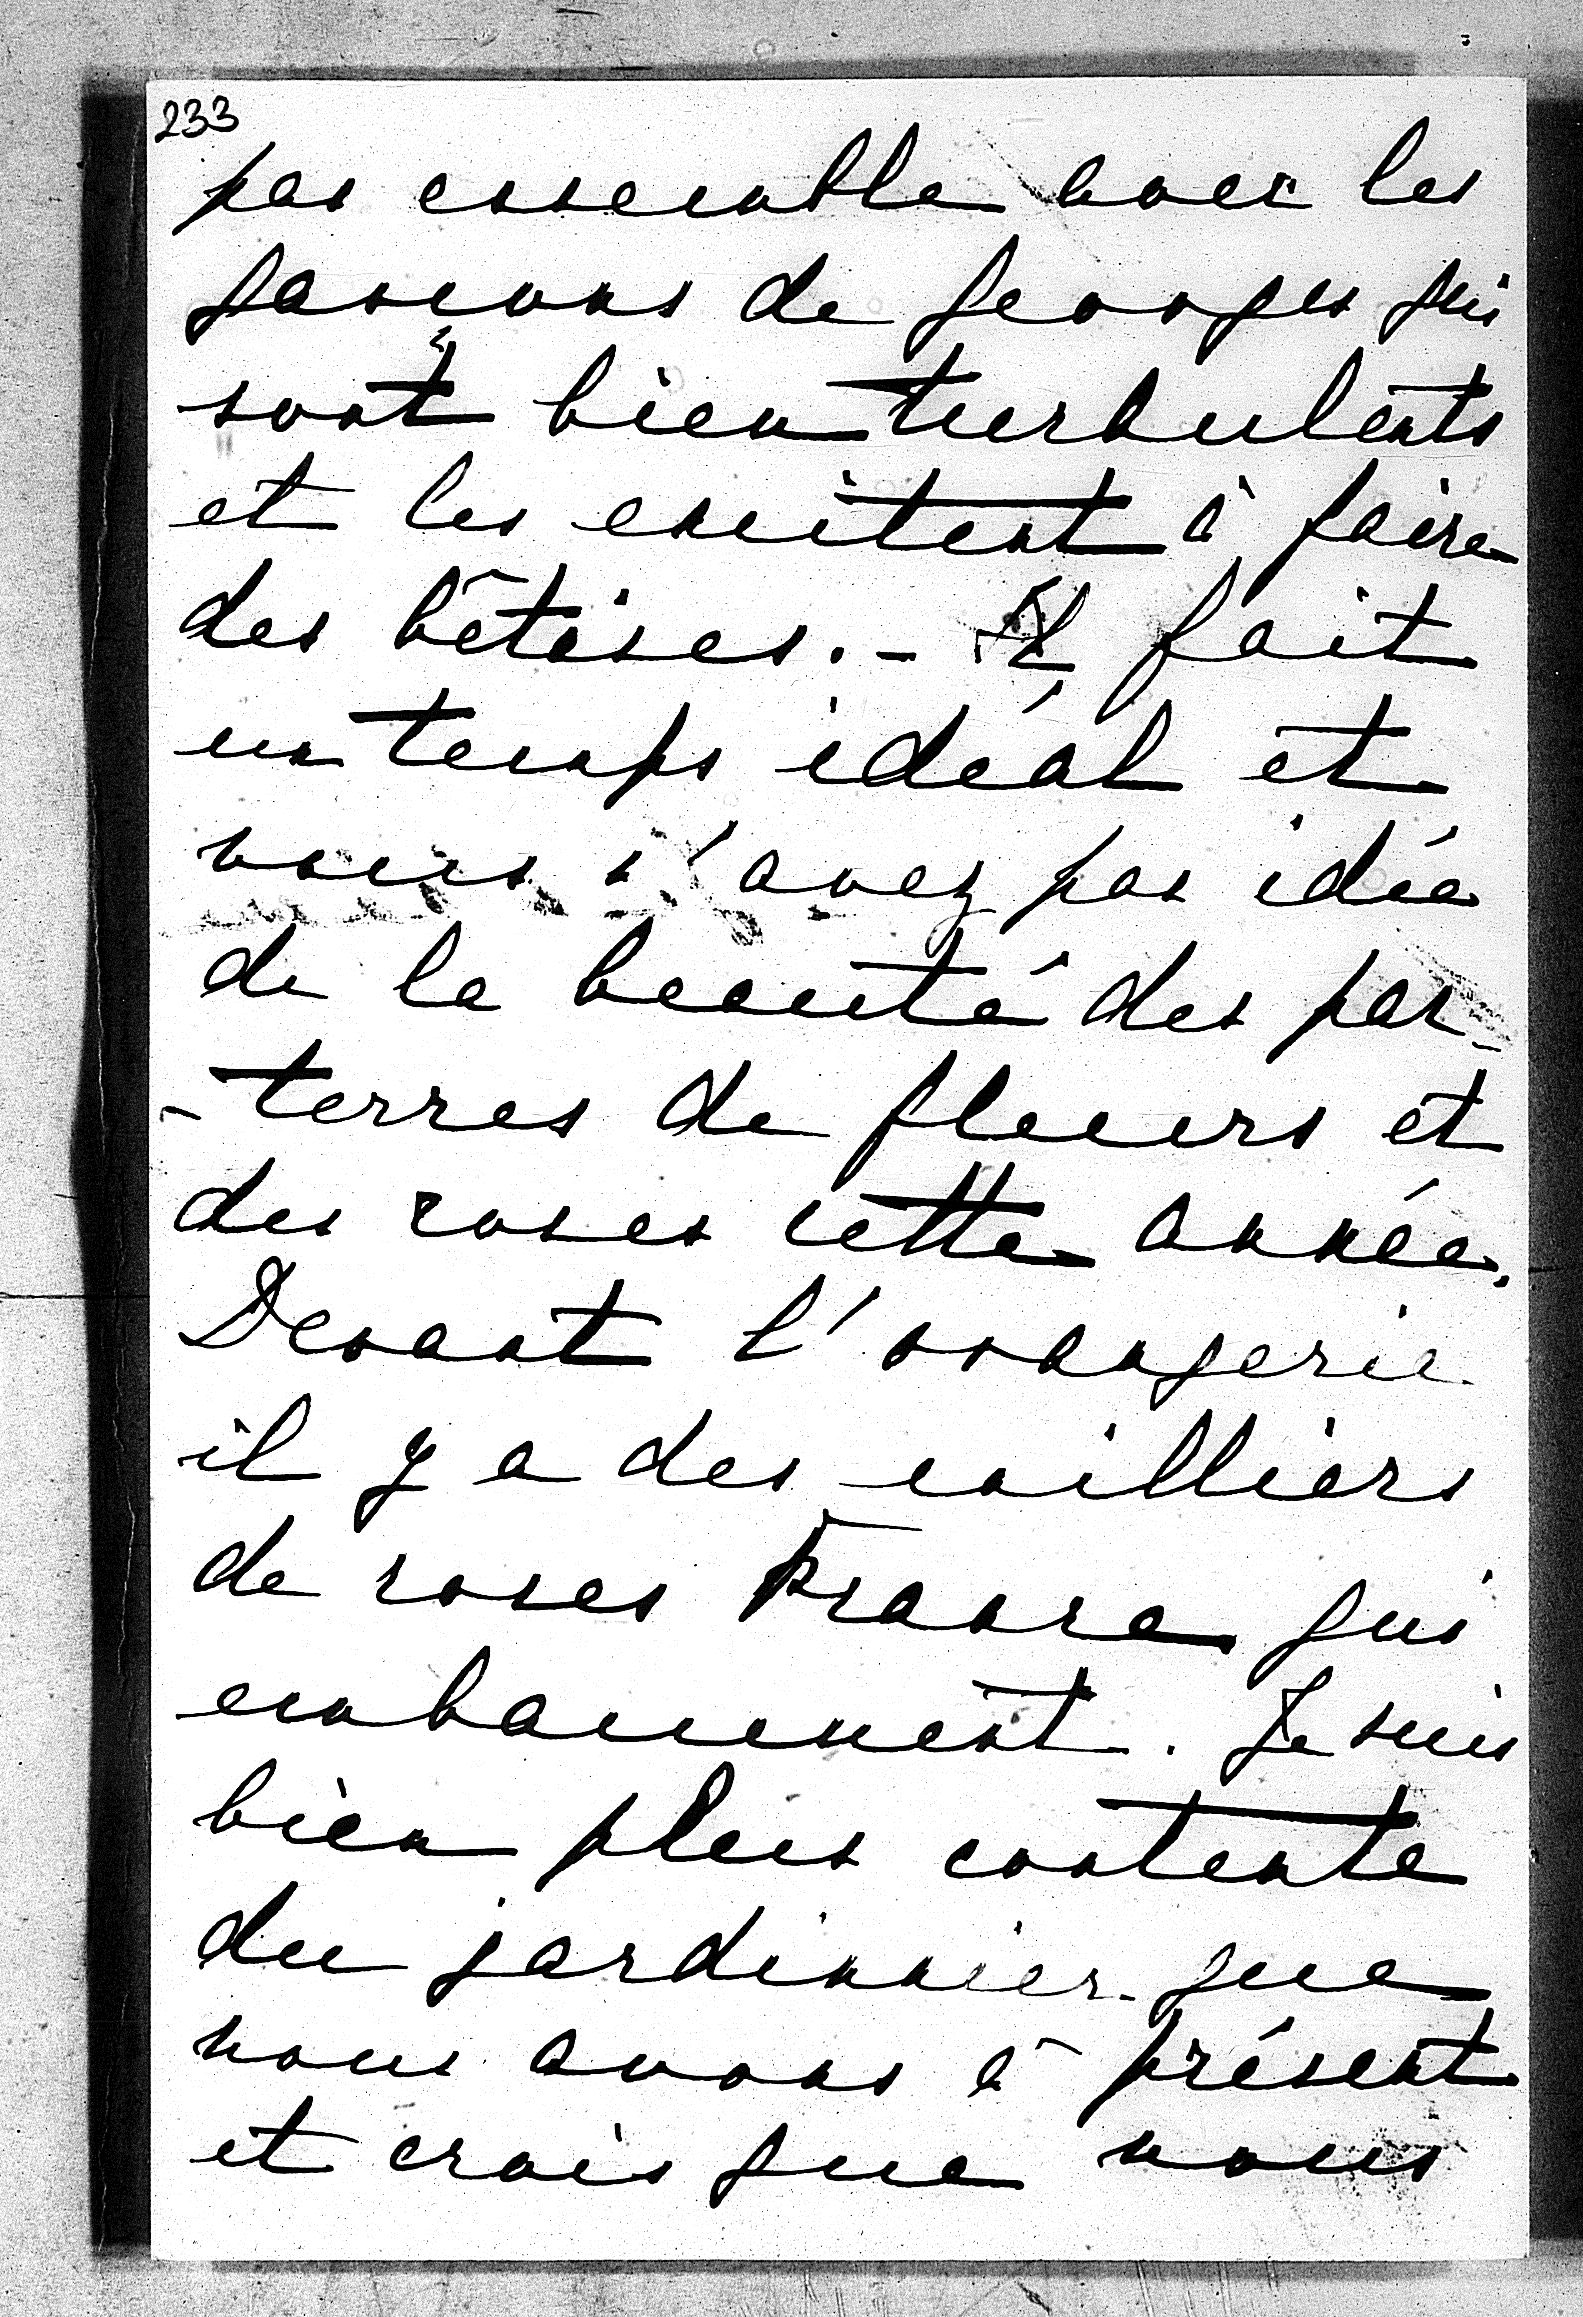 233
pas ensemble avec les
garçons de Georges qui
sont bien turbulents
et les excitent à faire
des bêtises. - Il fait
un temps idéal et
vous n'avez pas idée
de la beauté des par-
-terres de fleurs et
des roses cette année.
Devant l'orangerie
il y a des milliers
de roses France qui
embaument. Je suis
bien plus contente
du jardinnier que
nous avons à présent
et crois que vous